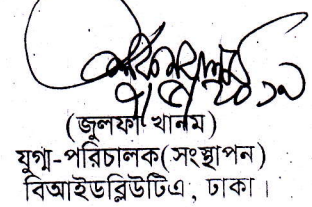 ৭/৫/২০১৯
(জুলফা খানম)
যুগ্ম-পরিচালক(সংস্থাপন)
বিআইডব্লিউটিএ, ঢাকা।